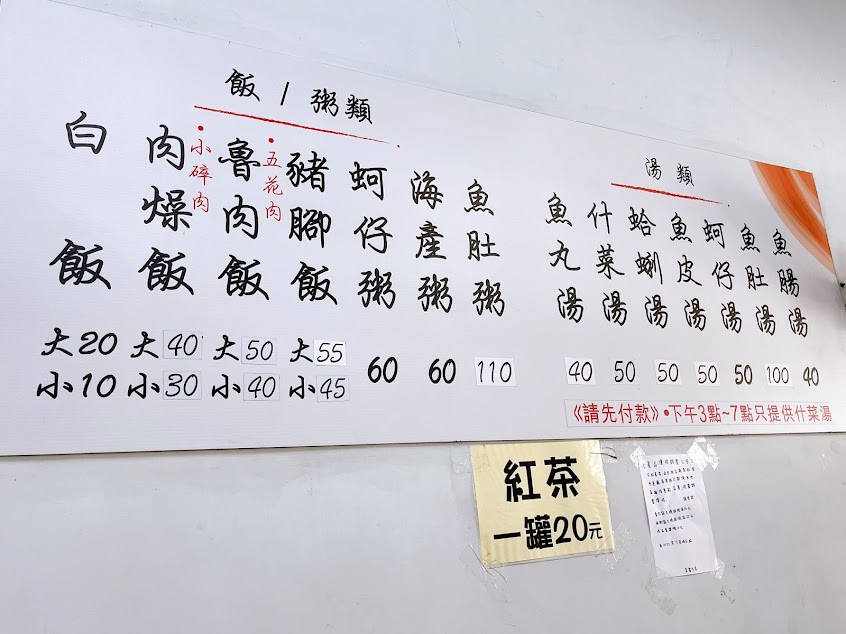 飯/粥類
白飯 大20 小10
肉燥飯 •小碎肉 大40 小30
魯肉飯 •五花肉 大50 小40
豬腳飯 大55 小45
蚵仔粥 60
海產粥 60
魚肚粥 110
湯類
魚丸湯 40
什菜湯 50
蛤蜊湯 50
魚皮湯 50
蚵仔湯 50
魚肚湯 100
魚腸湯 40
《請先付款》•下午3點~7點只提供什菜湯
紅茶
一罐20元